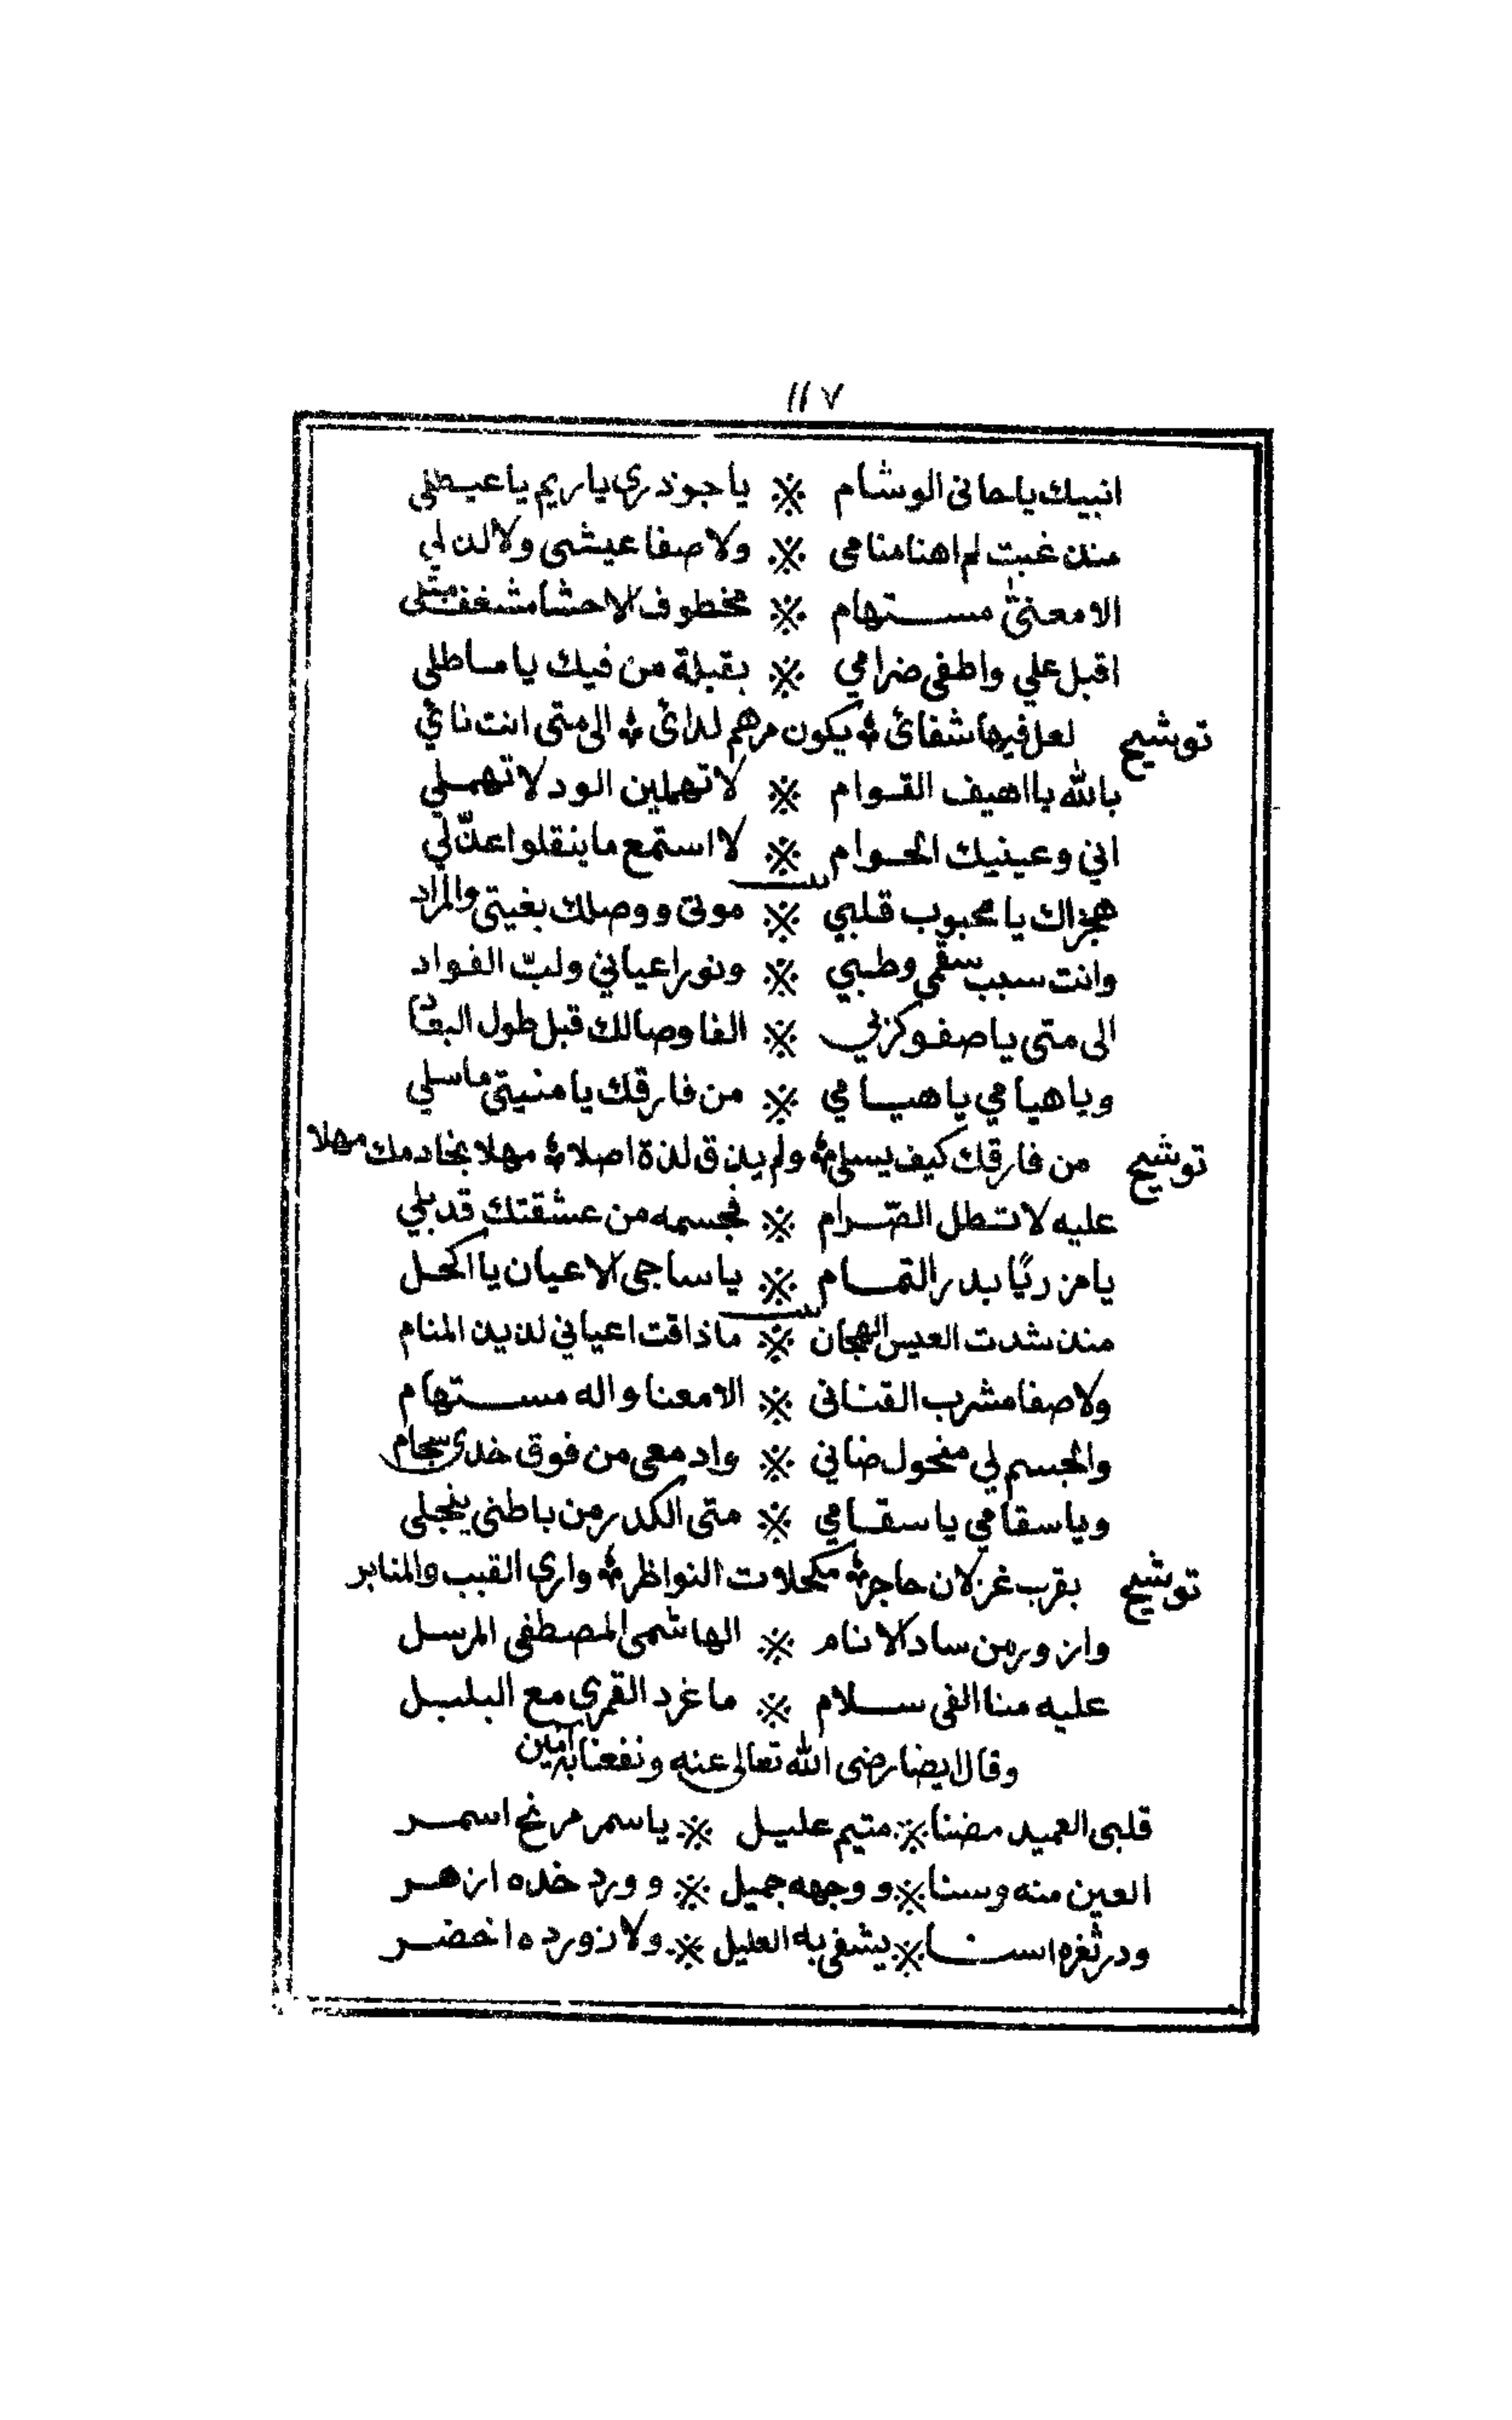 ١١٧
انبيك يا حانى الوشام ※ يا جوذري يا ريم يا عيطلي
منذ غبت لم اهنا منامى ※ ولا صفا عيشى ولا لذ لي
الا معنىّ مستهام ※ مخطوف الاحشا مشغف مبتلى
اقبل علي واطفى ضرامي ※ بقبلة من فيك يا ماطلى
توشيح لعل فيها شفائ ؞ يكون مرهم لدائ ؞ الى متى انت نائي
بالله يا اهيف القوام ※ لا تهملين الود لا تهملي
اني وعينيك الحوام ※ لا استمع ما ينقلوا عذّلي
بيت
هجراك يا محبوب قلبي ※ موتى ووصلك بغيتى والمراد
وانت سبب سقمى وطبي ※ ونور اعياني ولبّ الفواد
الى متى يا صفو كزبي ※ الفا وصالك قبل طول البعاد
ويا هيامي يا هيامي ※ من فارقك يا منيتى ما سلي
توشيح من فارقك كيف يسلى ؞ ولم يذق لذة اصلا ؞ مهلا بخادمك مهلا
عليه لا تطل الصّرام ※ فجسمه من عشقتك قد بلي
يا مزريًا بدر التمام ※ يا ساجى الاعيان يا اكحل
بيت
منذ شدت العيس الهجان ※ ما ذاقت اعياني لذيذ المنام
ولا صفا مشرب القنانى ※ الا معنا واله مستهام
والجسم لي منحول ضاني ※ وادمعى من فوق خدى سجام
ويا سقامي يا سقامي ※ متى الكدر من باطنى ينجلى
توشيح بقرب غزلان حاجر ؞ مكحلات النواظر ؞ واري القبب والمنابر
وازور من ساد الانام ※ الهاشمى المصطفى المرسل
عليه منا الفى سلام ※ ما غرد القمري مع البلبل
وقال ايضا رضى الله تعالى عنه ونفعنا به آمين
قلبى العميد مضنا ※ متيم عليل ※ يا سمر مرنح اسمر
العين منه وسنا ※ ووجهه جميل ※ وورد خده ازهر
ودر ثغره اسنا ※ يشفى به العليل ※ ولاذ ورده اخضر